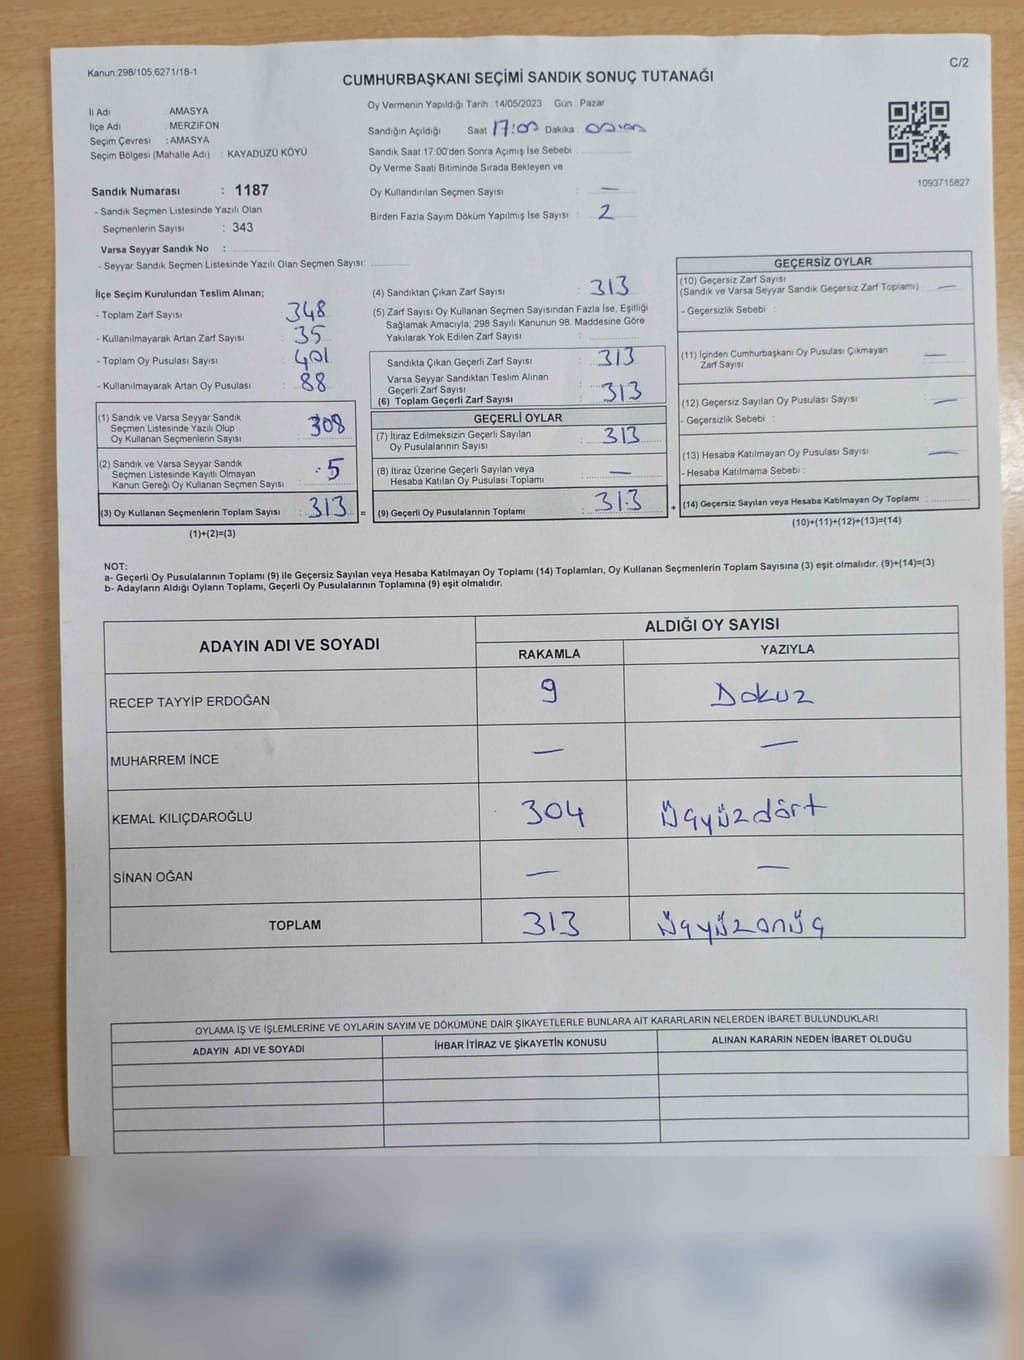 Kanun:298/105,6271/18-1
C/2
CUMHURBAŞKANI SEÇİMİ SANDIK SONUÇ TUTANAĞI
İl Adı : AMASYA
İlçe Adı : MERZİFON
Seçim Çevresi : AMASYA
Seçim Bölgesi (Mahalle Adı) : KAYADÜZÜ KÖYÜ
Sandık Numarası : 1187
- Sandık Seçmen Listesinde Yazılı Olan
Seçmenlerin Sayısı : 343
Varsa Seyyar Sandık No :
- Seyyar Sandık Seçmen Listesinde Yazılı Olan Seçmen Sayısı:
Oy Vermenin Yapıldığı Tarih : 14/05/2023 Gün : Pazar
Sandığın Açıldığı Saat 17:00 Dakika
Sandık Saat 17:00'den Sonra Açılmış İse Sebebi :
Oy Verme Saati Bitiminde Sırada Bekleyen ve
Oy Kullandırılan Seçmen Sayısı : —
Birden Fazla Sayım Döküm Yapılmış İse Sayısı : 2
1093715827
İlçe Seçim Kurulundan Teslim Alınan;
- Toplam Zarf Sayısı : 348
- Kullanılmayarak Artan Zarf Sayısı : 35
- Toplam Oy Pusulası Sayısı : 401
- Kullanılmayarak Artan Oy Pusulası : 88
(1) Sandık ve Varsa Seyyar Sandık
Seçmen Listesinde Yazılı Olup
Oy Kullanan Seçmenlerin Sayısı : 308
(2) Sandık ve Varsa Seyyar Sandık
Seçmen Listesinde Kayıtlı Olmayan
Kanun Gereği Oy Kullanan Seçmen Sayısı : 5
(3) Oy Kullanan Seçmenlerin Toplam Sayısı : 313 =
(1)+(2)=(3)
(4) Sandıktan Çıkan Zarf Sayısı : 313
(5) Zarf Sayısı Oy Kullanan Seçmen Sayısından Fazla İse, Eşitliği
Sağlamak Amacıyla, 298 Sayılı Kanunun 98. Maddesine Göre
Yakılarak Yok Edilen Zarf Sayısı :
Sandıkta Çıkan Geçerli Zarf Sayısı : 313
Varsa Seyyar Sandıktan Teslim Alınan
Geçerli Zarf Sayısı
(6) Toplam Geçerli Zarf Sayısı : 313
GEÇERLİ OYLAR
(7) İtiraz Edilmeksizin Geçerli Sayılan
Oy Pusulalarının Sayısı : 313
(8) İtiraz Üzerine Geçerli Sayılan veya
Hesaba Katılan Oy Pusulası Toplamı : —
(9) Geçerli Oy Pusulalarının Toplamı : 313 +
GEÇERSİZ OYLAR
(10) Geçersiz Zarf Sayısı
(Sandık ve Varsa Seyyar Sandık Geçersiz Zarf Toplamı) —
- Geçersizlik Sebebi :
(11) İçinden Cumhurbaşkanı Oy Pusulası Çıkmayan
Zarf Sayısı : —
(12) Geçersiz Sayılan Oy Pusulası Sayısı : —
- Geçersizlik Sebebi :
(13) Hesaba Katılmayan Oy Pusulası Sayısı : —
- Hesaba Katılmama Sebebi :
(14) Geçersiz Sayılan veya Hesaba Katılmayan Oy Toplamı :
(10)+(11)+(12)+(13)=(14)
NOT:
a- Geçerli Oy Pusulalarının Toplamı (9) ile Geçersiz Sayılan veya Hesaba Katılmayan Oy Toplamı (14) Toplamları, Oy Kullanan Seçmenlerin Toplam Sayısına (3) eşit olmalıdır. (9)+(14)=(3)
b- Adayların Aldığı Oyların Toplamı, Geçerli Oy Pusulalarının Toplamına (9) eşit olmalıdır.
ADAYIN ADI VE SOYADI
ALDIĞI OY SAYISI
RAKAMLA YAZIYLA
RECEP TAYYİP ERDOĞAN 9 Dokuz
MUHARREM İNCE — —
KEMAL KILIÇDAROĞLU 304 Üçyüzdört
SİNAN OĞAN — —
TOPLAM 313 Üçyüzonüç
OYLAMA İŞ VE İŞLEMLERİNE VE OYLARIN SAYIM VE DÖKÜMÜNE DAİR ŞİKAYETLERLE BUNLARA AİT KARARLARIN NELERDEN İBARET BULUNDUKLARI
ADAYIN ADI VE SOYADI İHBAR İTİRAZ VE ŞİKAYETİN KONUSU ALINAN KARARIN NEDEN İBARET OLDUĞU